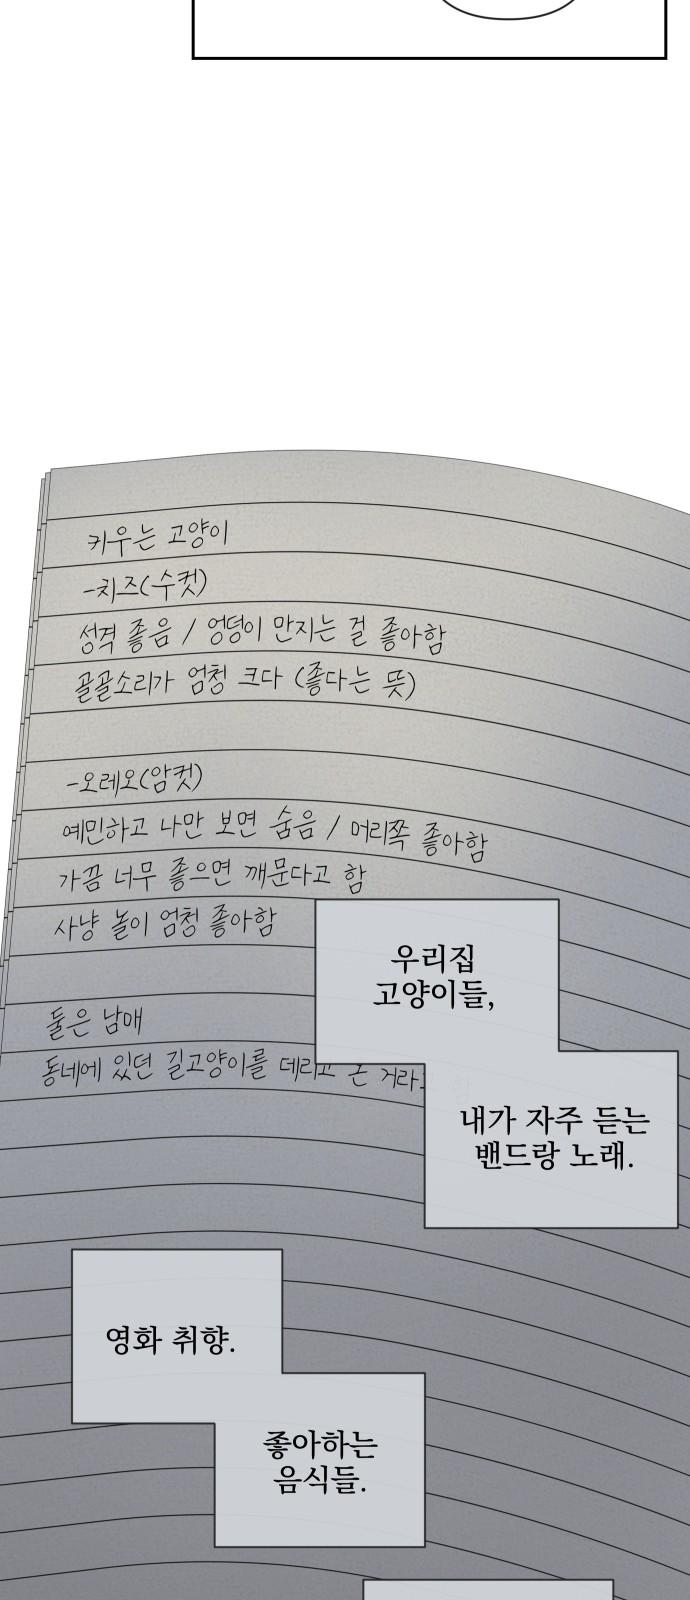 키우는 고양이
-치즈(수컷)
성격 좋음 / 엉덩이 만지는 걸 좋아함
골골소리가 엄청 크다 (좋다는 뜻)
-오레오(암컷)
예민하고 나만 보면 숨음 / 머리쪽 좋아함
가끔 너무 좋으면 깨문다고 함
사냥 놀이 엄청 좋아함
우리집
고양이들,
둘은 남매
동네에 있던 길고양이를 데리고 온 거라고 함
내가 자주 듣는
밴드랑 노래.
영화 취향.
좋아하는
음식들.